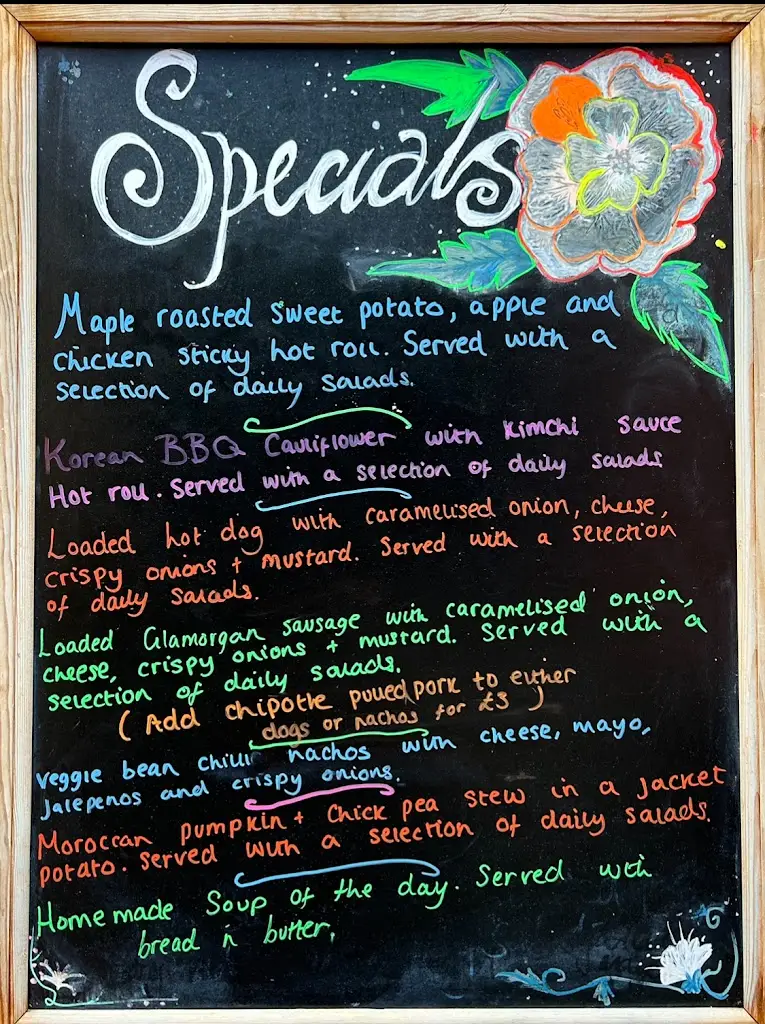 Specials
Maple roasted sweet potato, apple and
chicken sticky hot roll. Served with a
selection of daily salads.
Korean BBQ Cauliflower with Kimchi sauce
Hot roll. Served with a selection of daily salads
Loaded hot dog with caramelised onion, cheese,
crispy onions + mustard. Served with a selection
of daily salads.
Loaded Glamorgan sausage with caramelised onion,
cheese, crispy onions + mustard. Served with a
selection of daily salads.
( Add chipotle pulled pork to either
dogs or nachos for £3 )
veggie bean chilli nachos with cheese, mayo,
jalepenos and crispy onions.
Moroccan pumpkin + chick pea stew in a jacket
potato. Served with a selection of daily salads.
Home made Soup of the day. Served with
bread n butter.